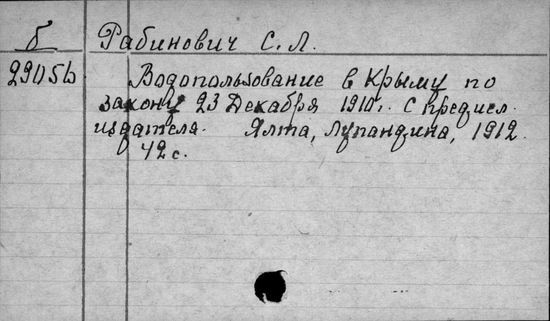 б Рабинович С. Л.
29056 Водопользование в Крыму по
закону 23 Декабря 1910 г. С предисл.
издателя. Ялта, Лупандина, 1912.
42 с.